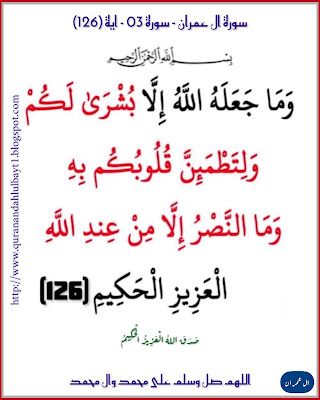 سورة ال عمران - سورة 03 - اية (126)
بِسْمِ اللَّهِ الرَّحْمَٰنِ الرَّحِيمِ
وَمَا جَعَلَهُ اللَّهُ إِلَّا بُشْرَىٰ لَكُمْ
وَلِتَطْمَئِنَّ قُلُوبُكُم بِهِ
وَمَا النَّصْرُ إِلَّا مِنْ عِندِ اللَّهِ
الْعَزِيزِ الْحَكِيمِ (126)
صَدَقَ اللهُ الْعَزِيزُ الْحَكِيمُ
اللهم صل وسلم على محمد وال محمد
ال عمران
http://www.quranandahlulbayt1.blogspot.com